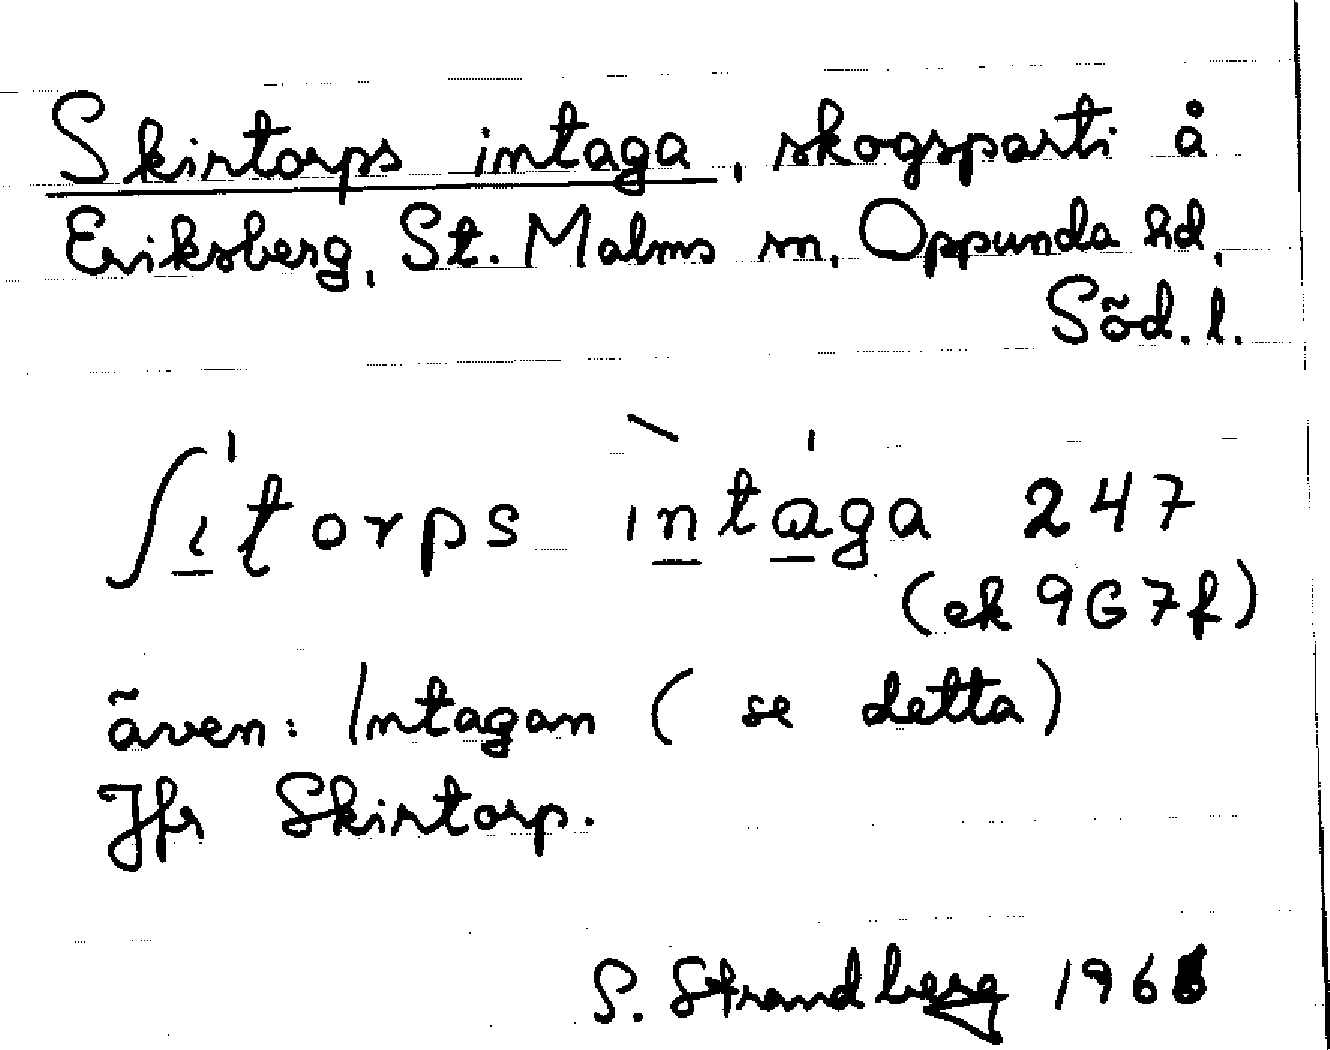 Skirtorps intaga, skogsparti å
Eriksberg, St. Malms sn, Oppunda hd,
Söd. l.
ʃi̲'torps ìn̲ta̲'ga 247
(ek 9G7f)
även: Intagan (se detta)
Jfr Skirtorp.
S. Strandberg 196